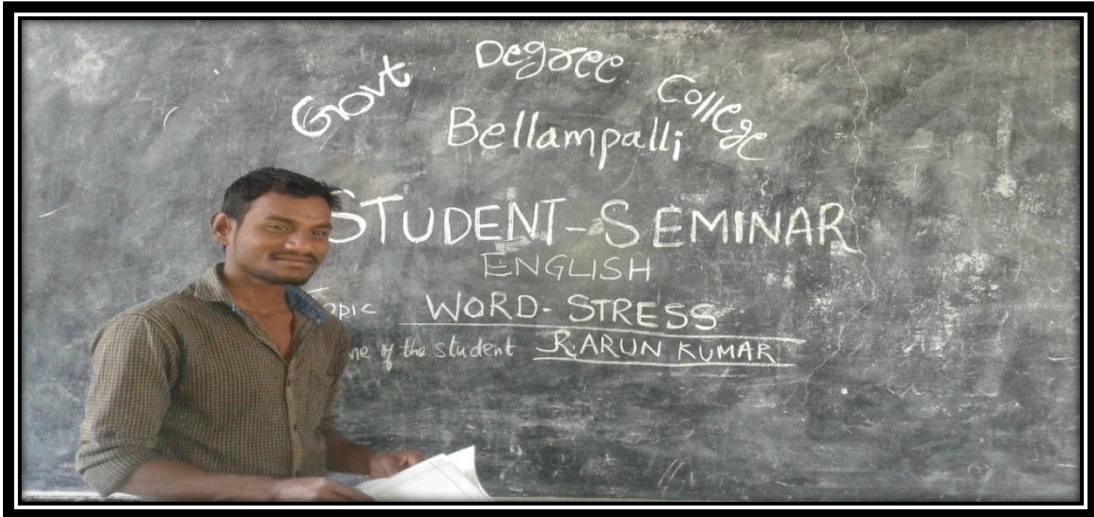 Govt Degree College
Bellampalli
STUDENT-SEMINAR
ENGLISH
Topic WORD-STRESS
ne of the student R.ARUN KUMAR